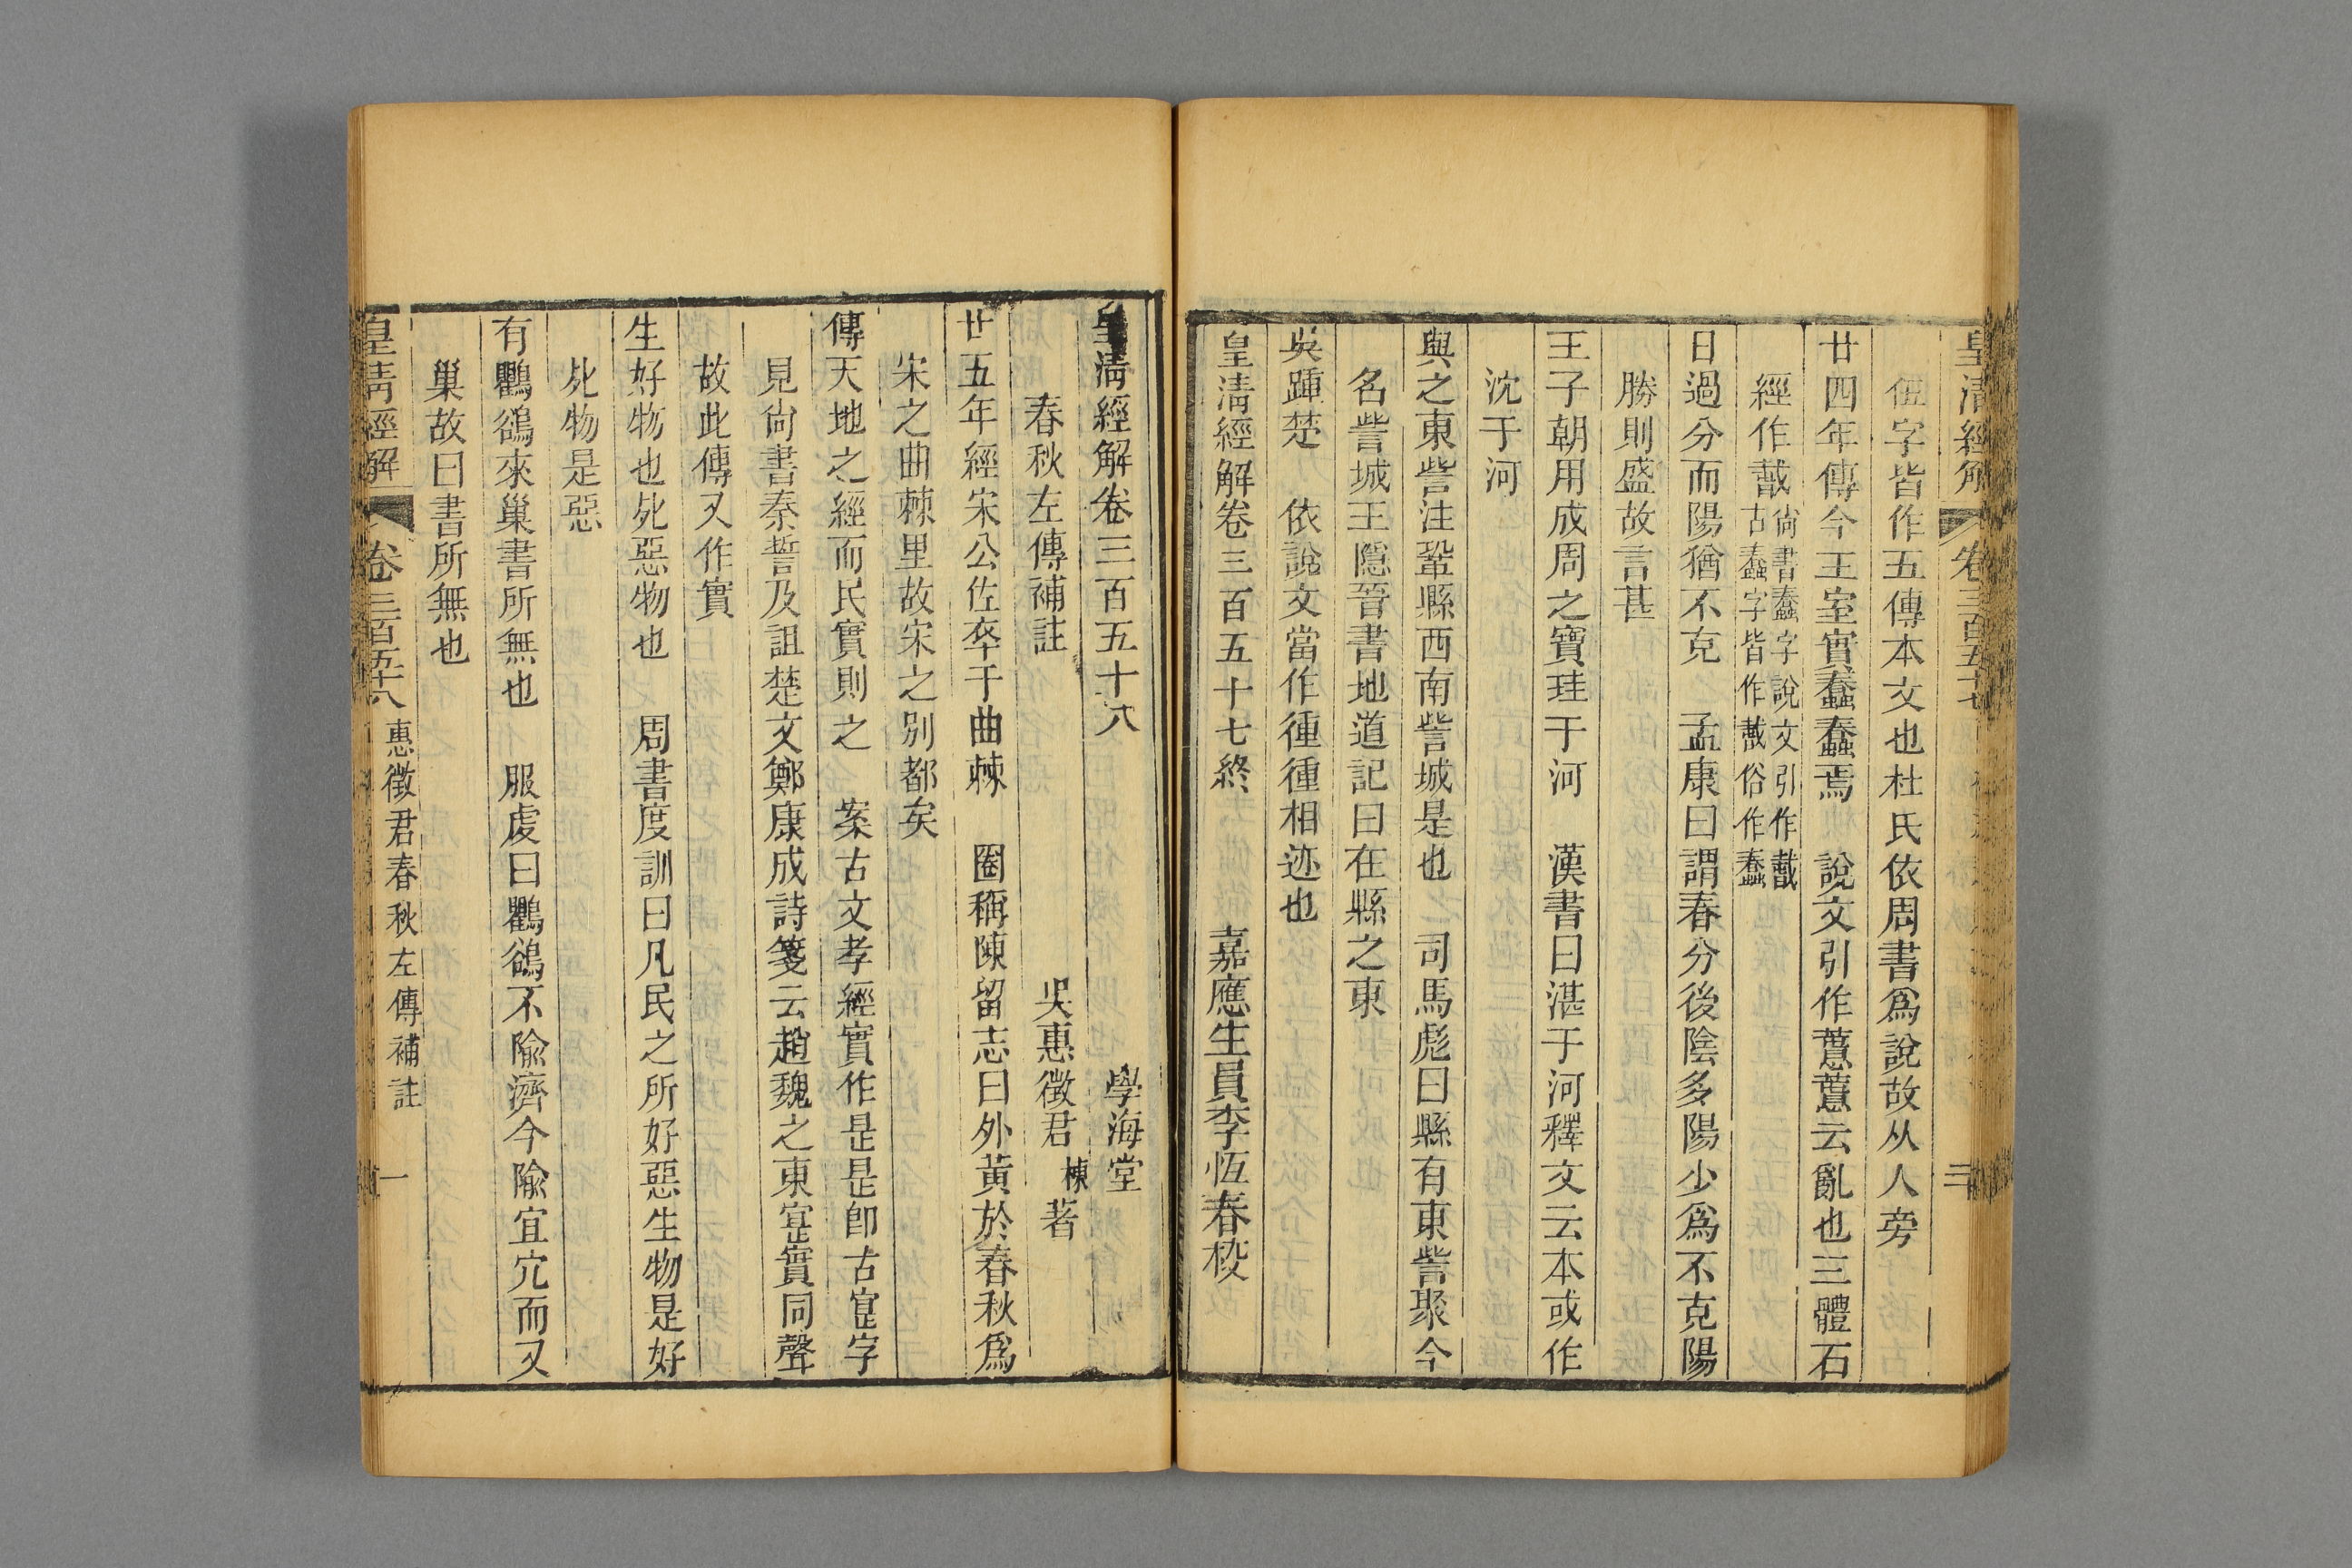 皇清經解 卷三百五十七 三
伍字皆作五傳本文也杜氏依周書爲說故从人旁
廿四年傳今王室實蠢蠢焉 說文引作𢡟𢡟云亂也三體石
經作𢧵尙書蠢字說文引作𢧵古蠢字皆作𢧵俗作蠢
日過分而陽猶不克 孟康曰謂春分後陰多陽少爲不克陽
勝則盛故言甚
王子朝用成周之寶珪于河 漢書曰湛于河釋文云本或作
沈于河
與之東訾注鞏縣西南訾城是也 司馬彪曰縣有東訾聚今
名訾城王隱晉書地道記曰在縣之東
吳踵楚 依說文當作歱歱相迹也
皇清經解卷三百五十七終 嘉應生員李恆春校
皇清經解卷三百五十八 學海堂
春秋左傳補註 吳惠徵君棟著
廿五年經宋公佐卒于曲棘 圈稱陳留志曰外黃於春秋爲
宋之曲棘里故宋之別都矣
傳天地之經而民實則之 案古文孝經實作是是卽古寔字
見尙書秦誓及詛楚文鄭康成詩箋云趙魏之東寔實同聲
故此傳又作實
生好物也死惡物也 周書度訓曰凡民之所好惡生物是好
死物是惡
有鸜鵒來巢書所無也 服虔曰鸜鵒不踰濟今踰宜穴而又
巢故曰書所無也
皇清經解 卷三百五十八 惠徵君春秋左傳補註 一